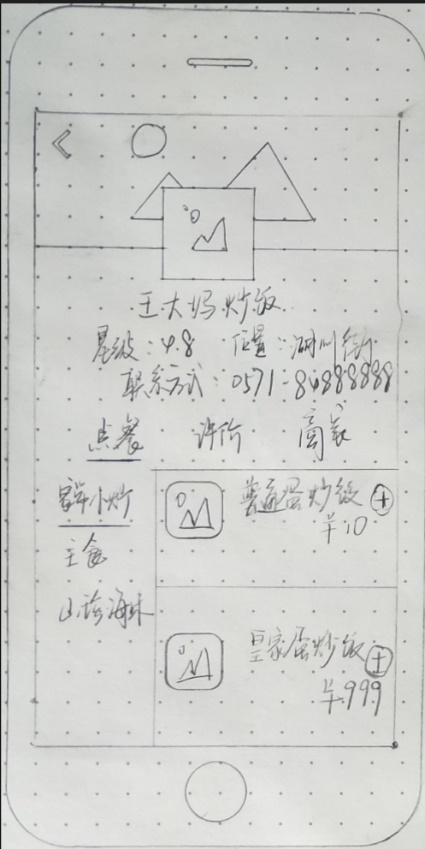 王大妈炒饭
星级：4.8 位置：湖州街
联系方式：0571-84888888
点餐 评价 商家
家常小炒
主食
山珍海味
普通蛋炒饭
¥10
皇家蛋炒饭
¥999